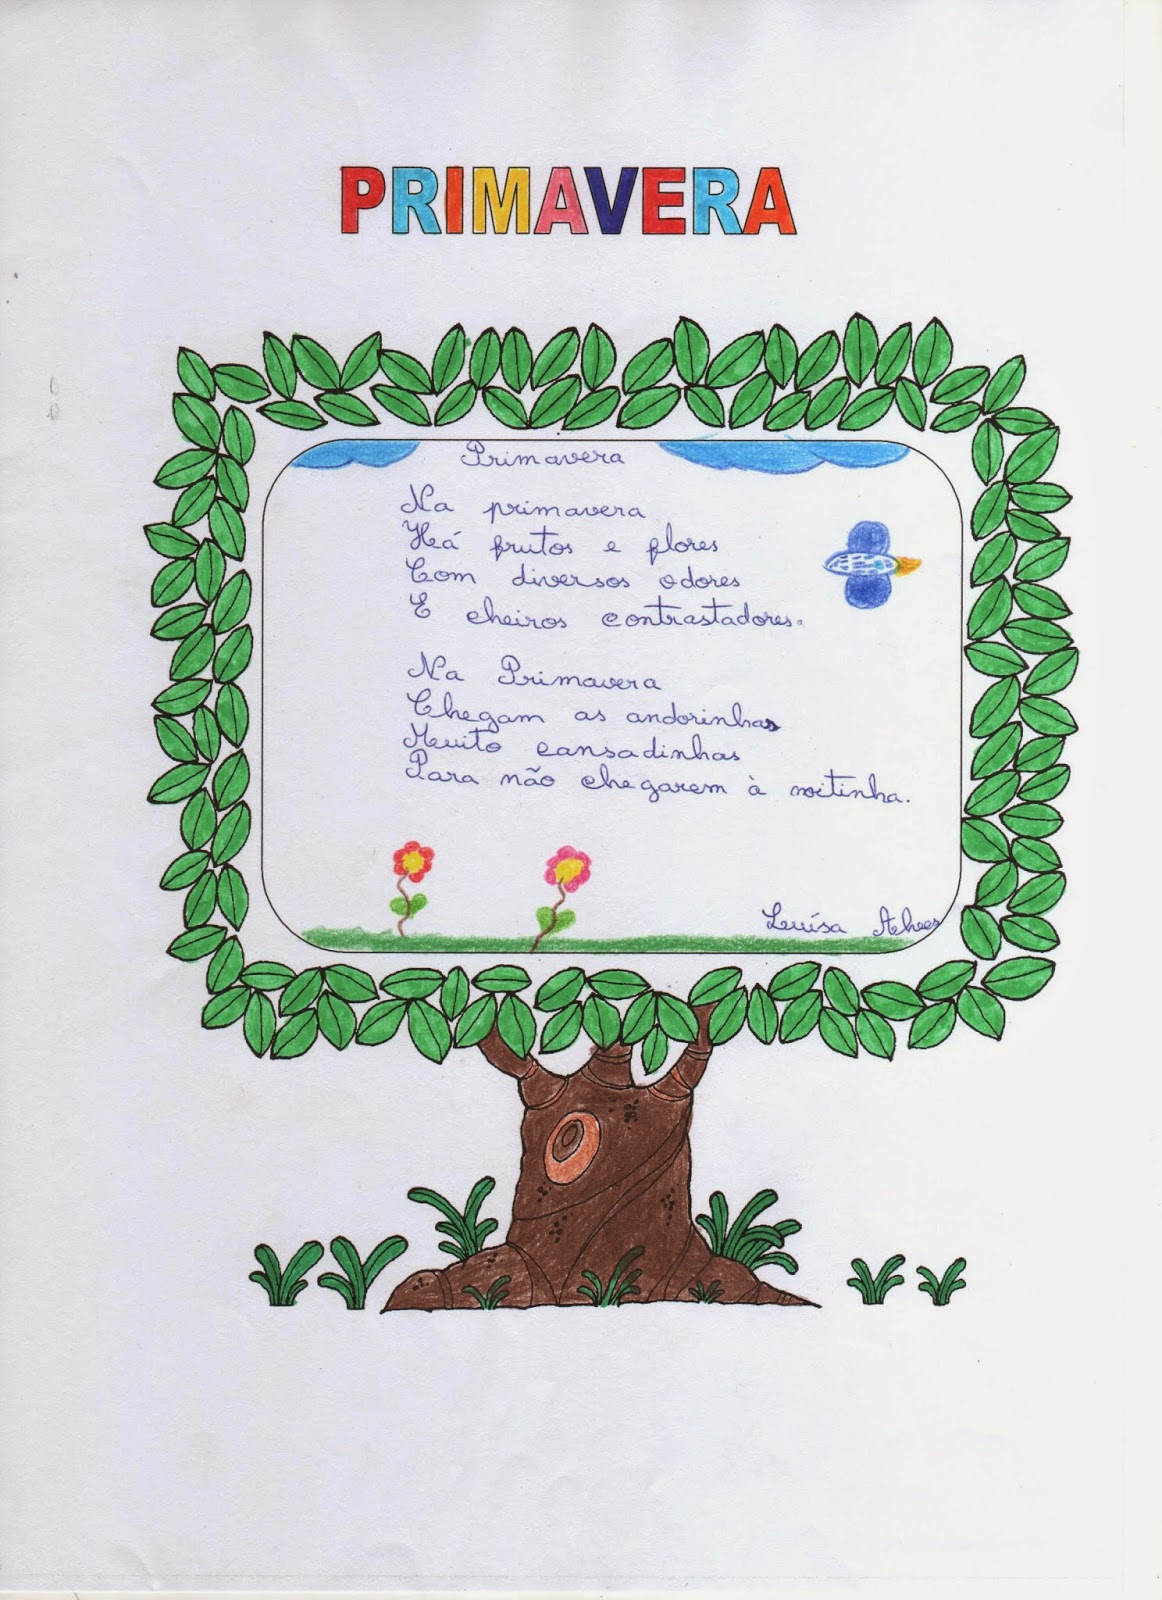 PRIMAVERA
Primavera
Na primavera
Há frutos e flores
Com diversos odores
E cheiros contrastadores.
Na Primavera
Chegam as andorinhas
Muito cansadinhas
Para não chegarem à noitinha.
Luísa Alves